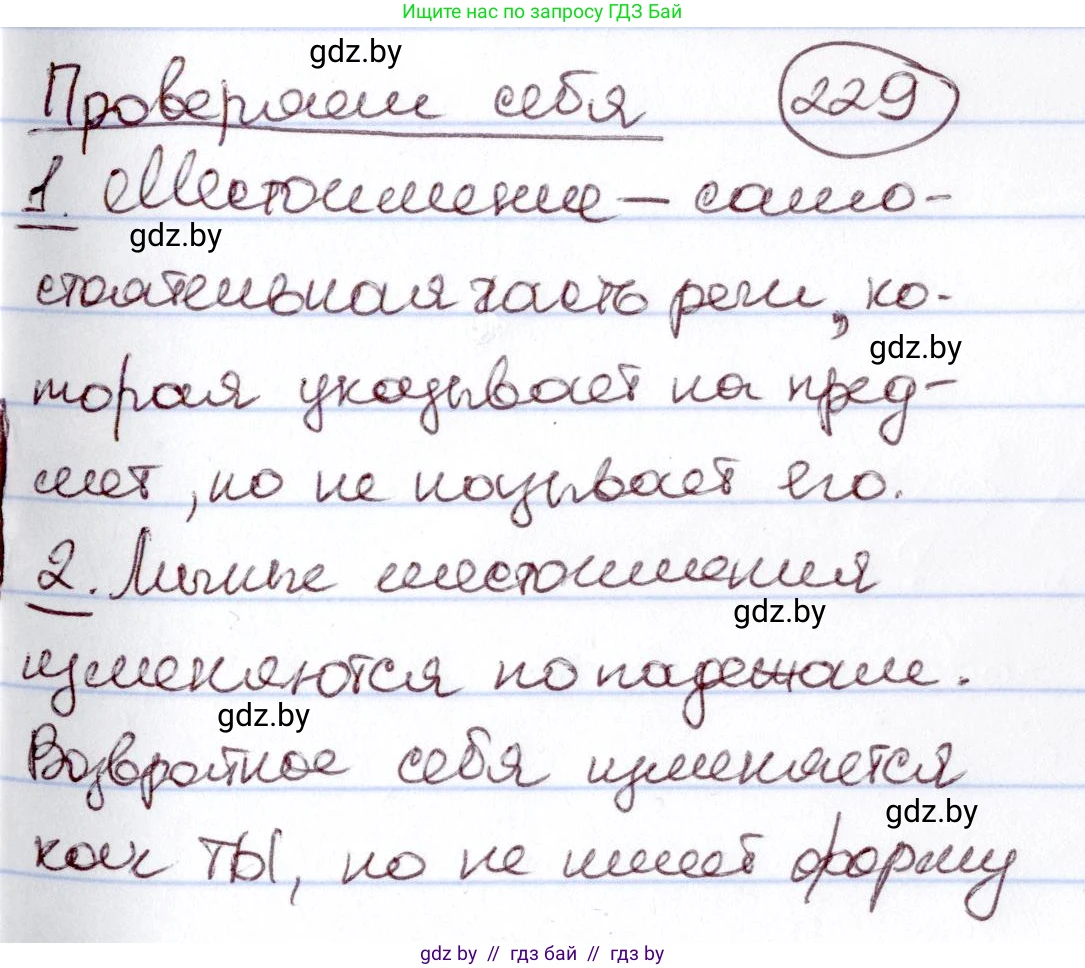 Ищите нас по запросу ГДЗ Бай
gdz.by
Проверяем себя 229
1. Местоимение — само-
gdz.by
стоятельная часть речи, ко-
gdz.by
торая указывает на пред-
мет, но не называет его.
2. Личные местоимения
gdz.by
изменяются по падежам.
gdz.by
Возвратное себя изменяется
gdz.by
как ТЫ, но не имеет форму
gdz by // гдз бай // гдз by